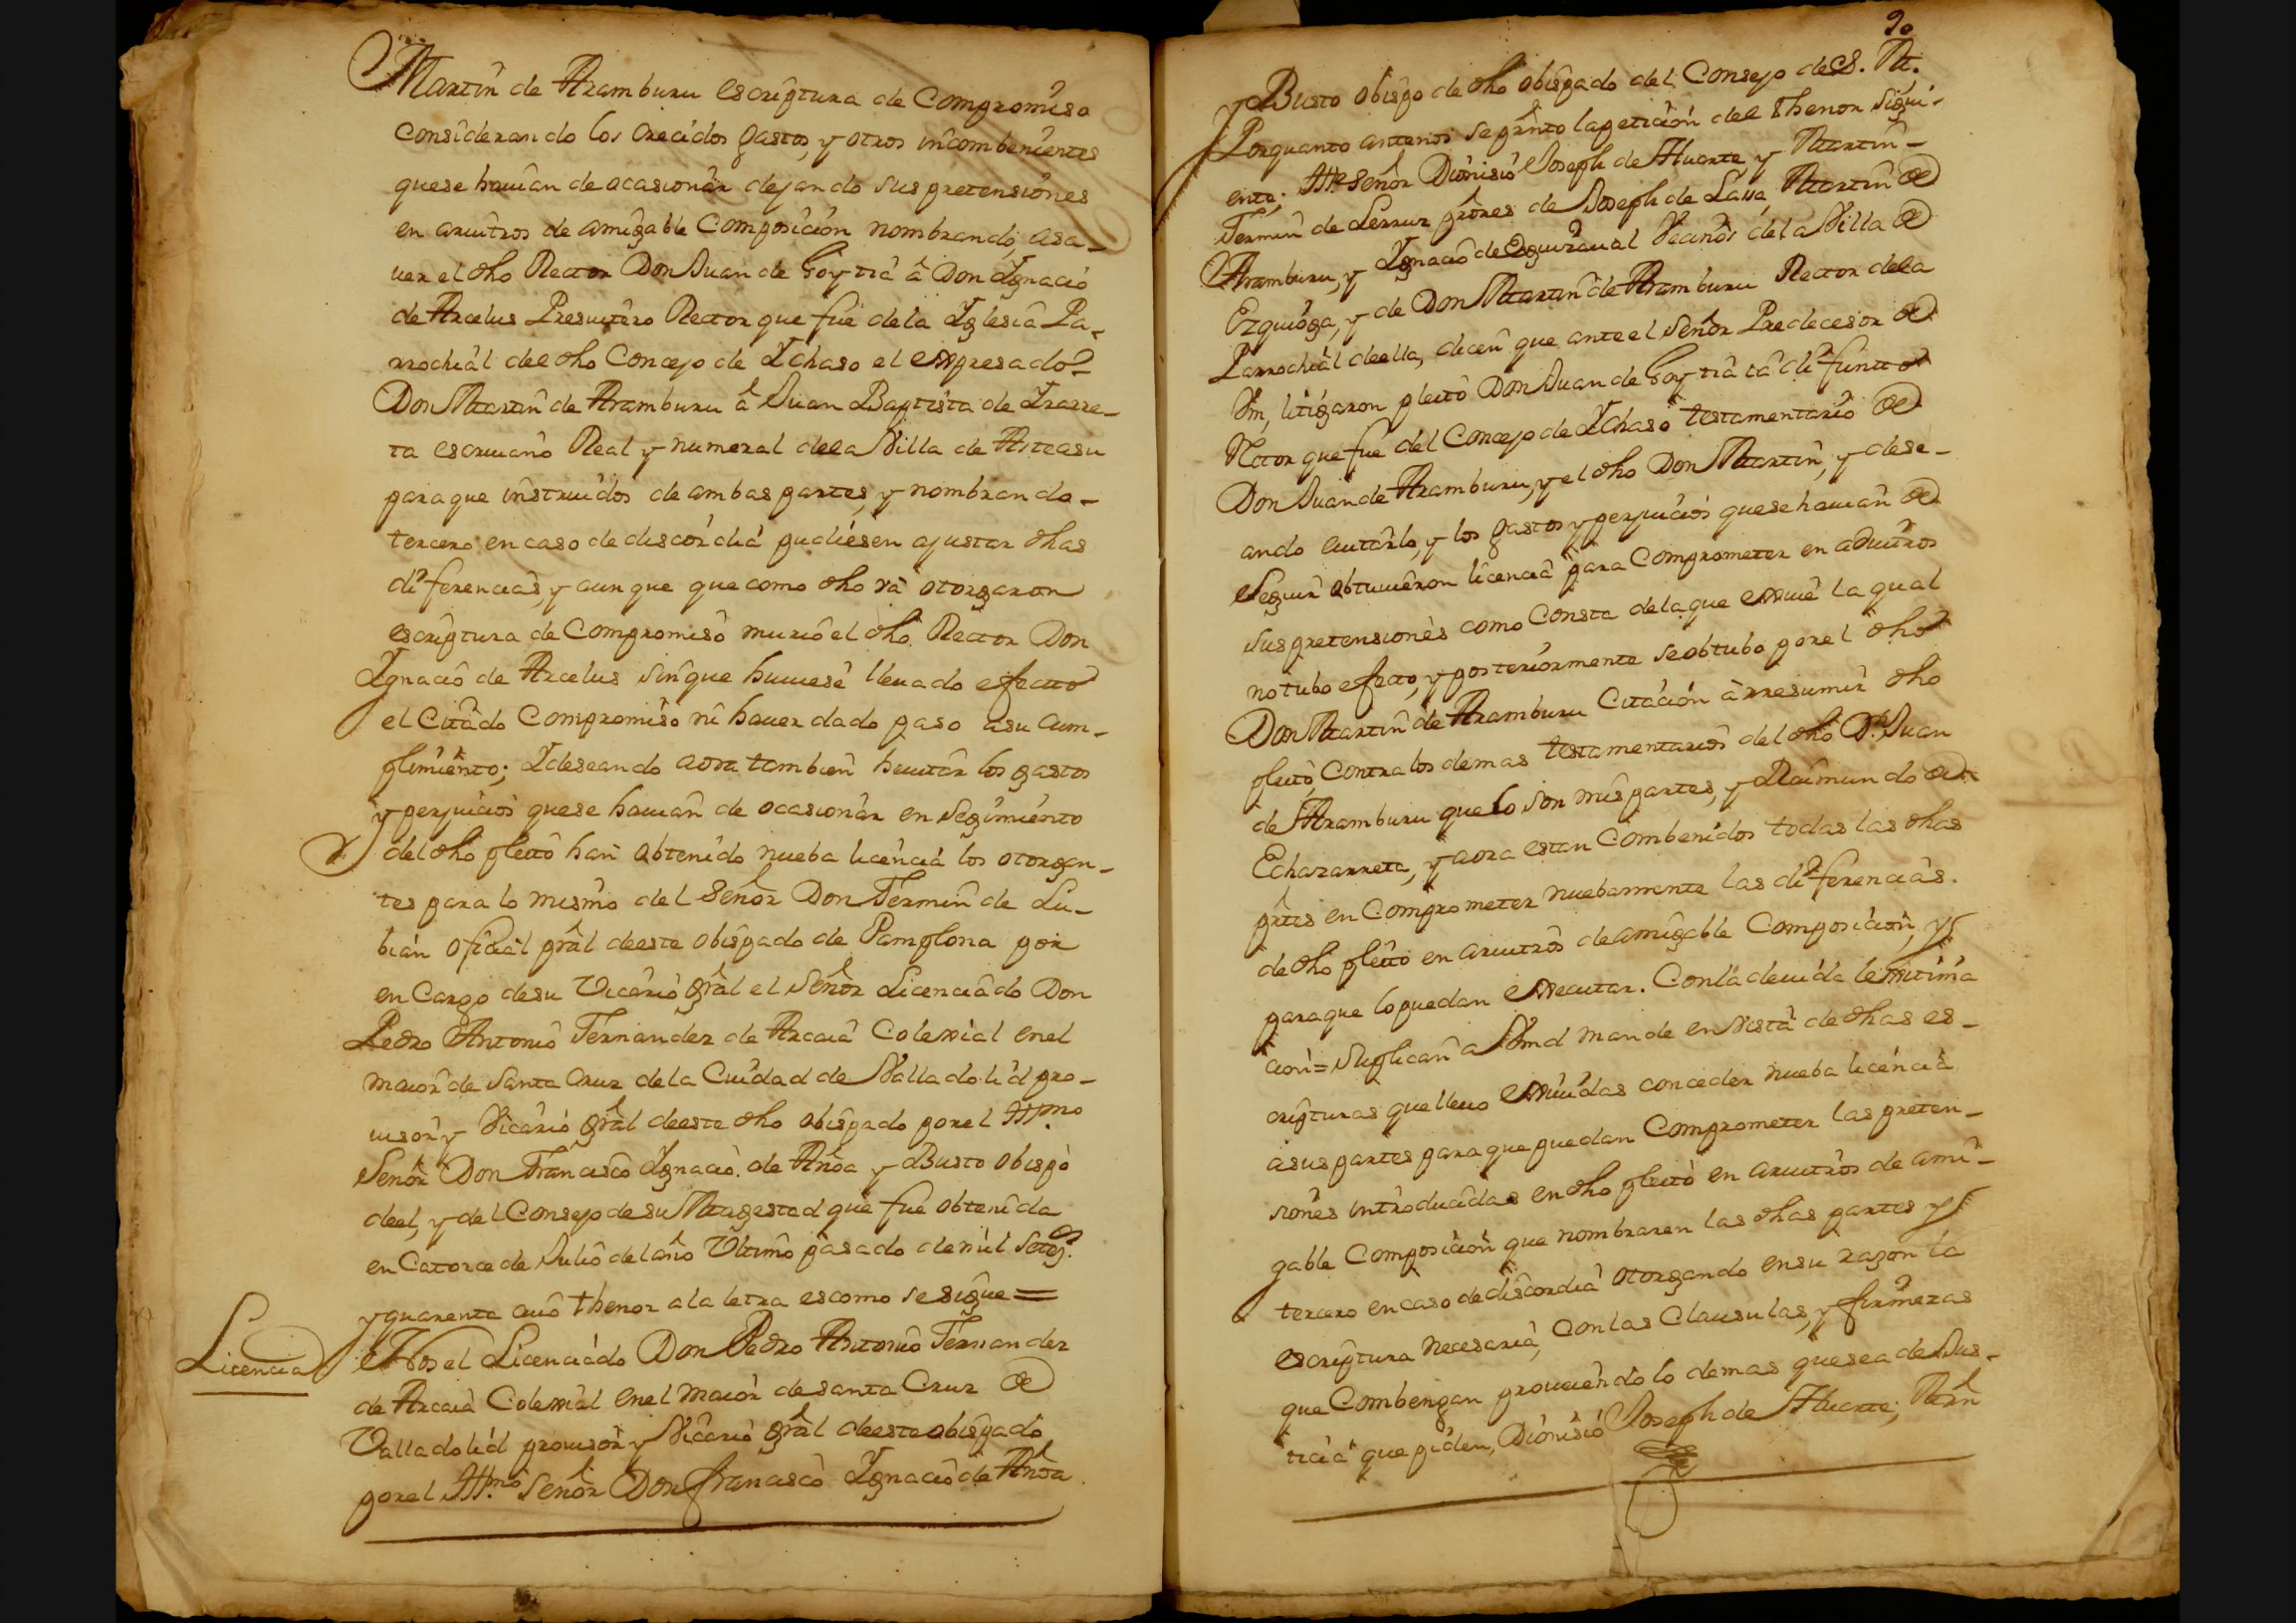 Martin de Aramburu escriptura de Compromiso
considerando los crecidos gastos, y otros incombenientes
que se hauian de ocasionar dejando sus pretensiones
en aruitros de amigable Composicion nombrando, asa-
uer el dho Rector Don Juan de Goytia â Don Ygnacio
de Arcelus Presuitero Rector que fue dela Yglesia Pa-
rrochial del dho Concejo de Ychaso el expresado
Don Martin de Aramburu â Juan Baptista de Yrarre-
ta escriuano Real y numeral dela Villa de Asteasu
para que instruidos de ambas partes, y nombrando-
tercero en caso de discordia pudiesen ajustar dhas
diferencias, y aunque que como dho va otorgaron
escriptura de Compromiso murio el dho Rector Don
Ygnacio de Arcelus sin que huuiese lleuado efecto
el Citado Compromiso ni hauer dado paso a su Cum-
plimiento; Y deseando aora tambien heuitar los gastos
y perjuicios que se hauian de ocasionar en Segimiento
del dho pleito han obtenido nueba licencia los otorgan-
tes para lo mismo del Señor Don Fermin de Lu-
bian oficial prãl de este obispado de Pamplona por
en Cargo de su Vicario grãl el Señor Licenciado Don
Pedro Antonio Fernandez de Arcaia Colexial enel
maior de Santa Cruz dela Ciudad de Valladolid pro-
uisor y Vicario grãl de este dho obispado por el Yllmo
Señor Don Francisco Ygnacio de Añoa y Busto obispo
deel, y del Consejo de su Magestad que fue obtenida
en Catorce de Julio del año Vltimo pasado de mil Setezs
y quarenta cuio thenor a la letra es como se sigue =
Licencia
Nos el Licenciado Don Pedro Antonio Fernandez
de Arcaia Colexial enel maior de Santa Cruz de
Valladolid prouisor y Vicario grãl de este obispado
por el Yllmo Señor Don francisco Ygnacio de Añoa
90
y Busto obispo de dho obispado del Consejo de S. M.
Por quanto antenos se prẽnto la peticion del thenor Sigui-
ente; Señor Dionisio Joseph de Huarte y Martin-
Fermin de Lerruz prõres de Joseph de Lasa, Martin de
Aramburu, y Ygnacio de Eguzaual Vecinos de la Villa de
Ezquioga, y de Don Martin de Aramburu Rector dela
Parrochial deella, dicen que ante el Señor Predecesor de
Vm, litigaron pleito Don Juan de Goytia ia difunto
Rector que fue del Concejo de Ychaso testamentario de
Don Juan de Aramburu, y el dho Don Martin, y dese-
ando euitarlo, y los gastos y perjuicios que se hauian de
Seguir obtuuieron licencia para Comprometer en aruitros
sus pretensiones como Consta dela que exiue la qual
no tubo efecto, y posteriormente se obtubo por el dho
Don Martin de Aramburu Citacion â rresumir dho
pleito, Contra los demas testamentarios del dho Dn Juan
de Aramburu que lo son mis partes, y Raimundo de
Echazarreta, y aora estan Combenidos todas las dhas
prtes en Comprometer nuebamente las diferencias.
de dho pleito en aruitros de amigable Composicion, y
para que lo puedan executar. Con la deuida lexitima
cion = Suplican a Vmd mande en Vista de dhas es-
cripturas que lleuo exiuidas conceder nueba licencia
a sus partes para que puedan Comprometer las preten-
siones introducidas en dho pleito en aruitros de ami-
gable Composicion que nombraren las dhas partes y
tercero en caso de discordia otorgando en su razon la
escriptura Necesaria, con las Clausulas, y firmezas
que Combengan proueiendo lo demas que sea de Jus-
ticia que piden, Dionisio Joseph de Huarte; Mrñ